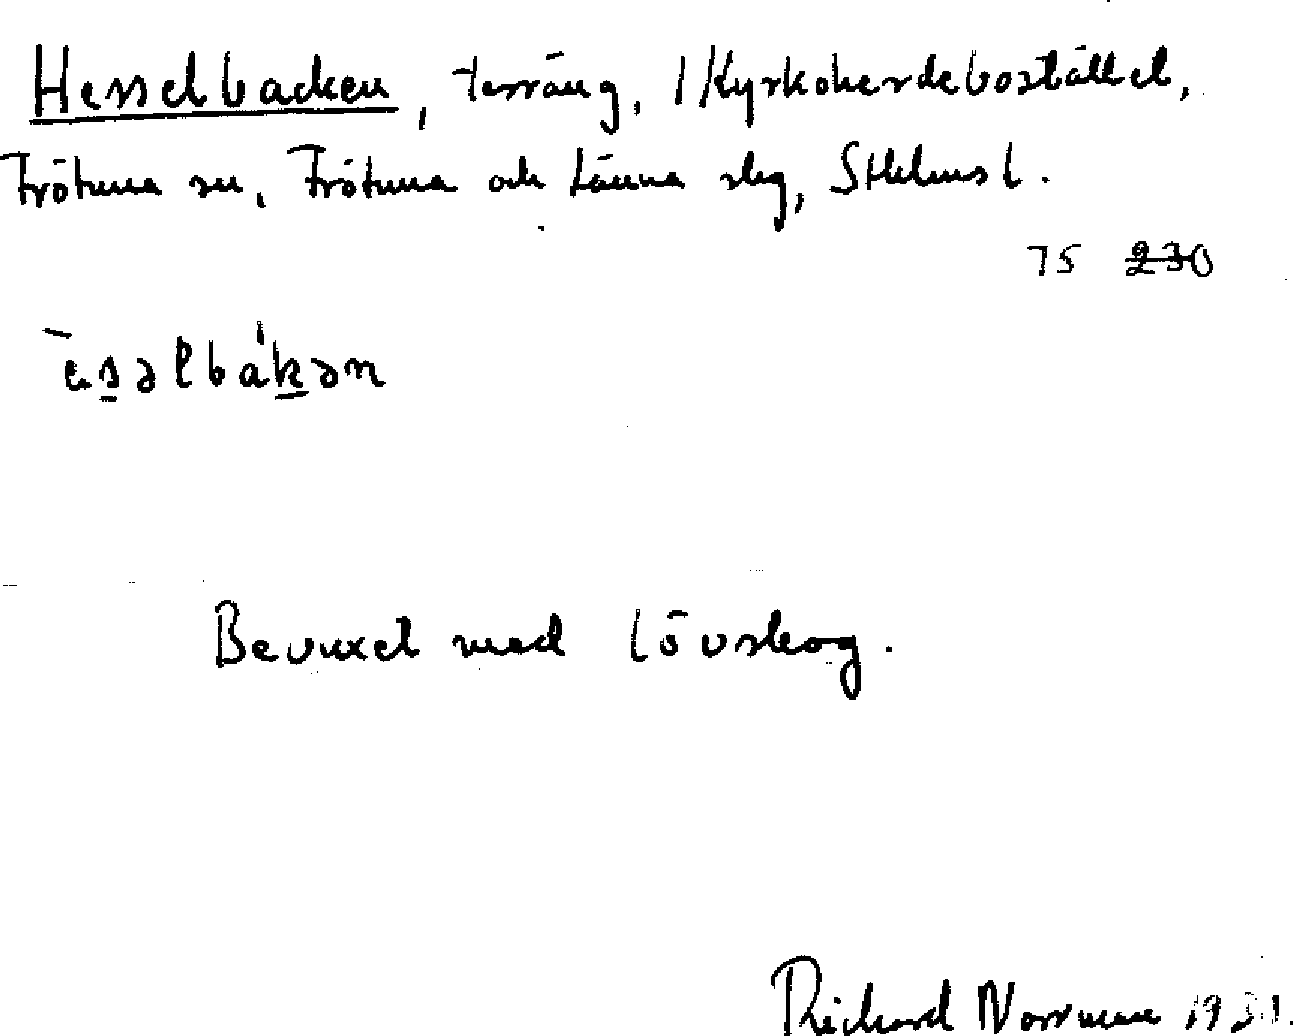 Hesselbacken, terräng, / Kyrkoherdebostället,
Frötuna sn, Frötuna och Länna slg, Sthlms l.
75 230
ɛsəlbákən
Bevuxet med lövskog.
Richard Norrman 1931.